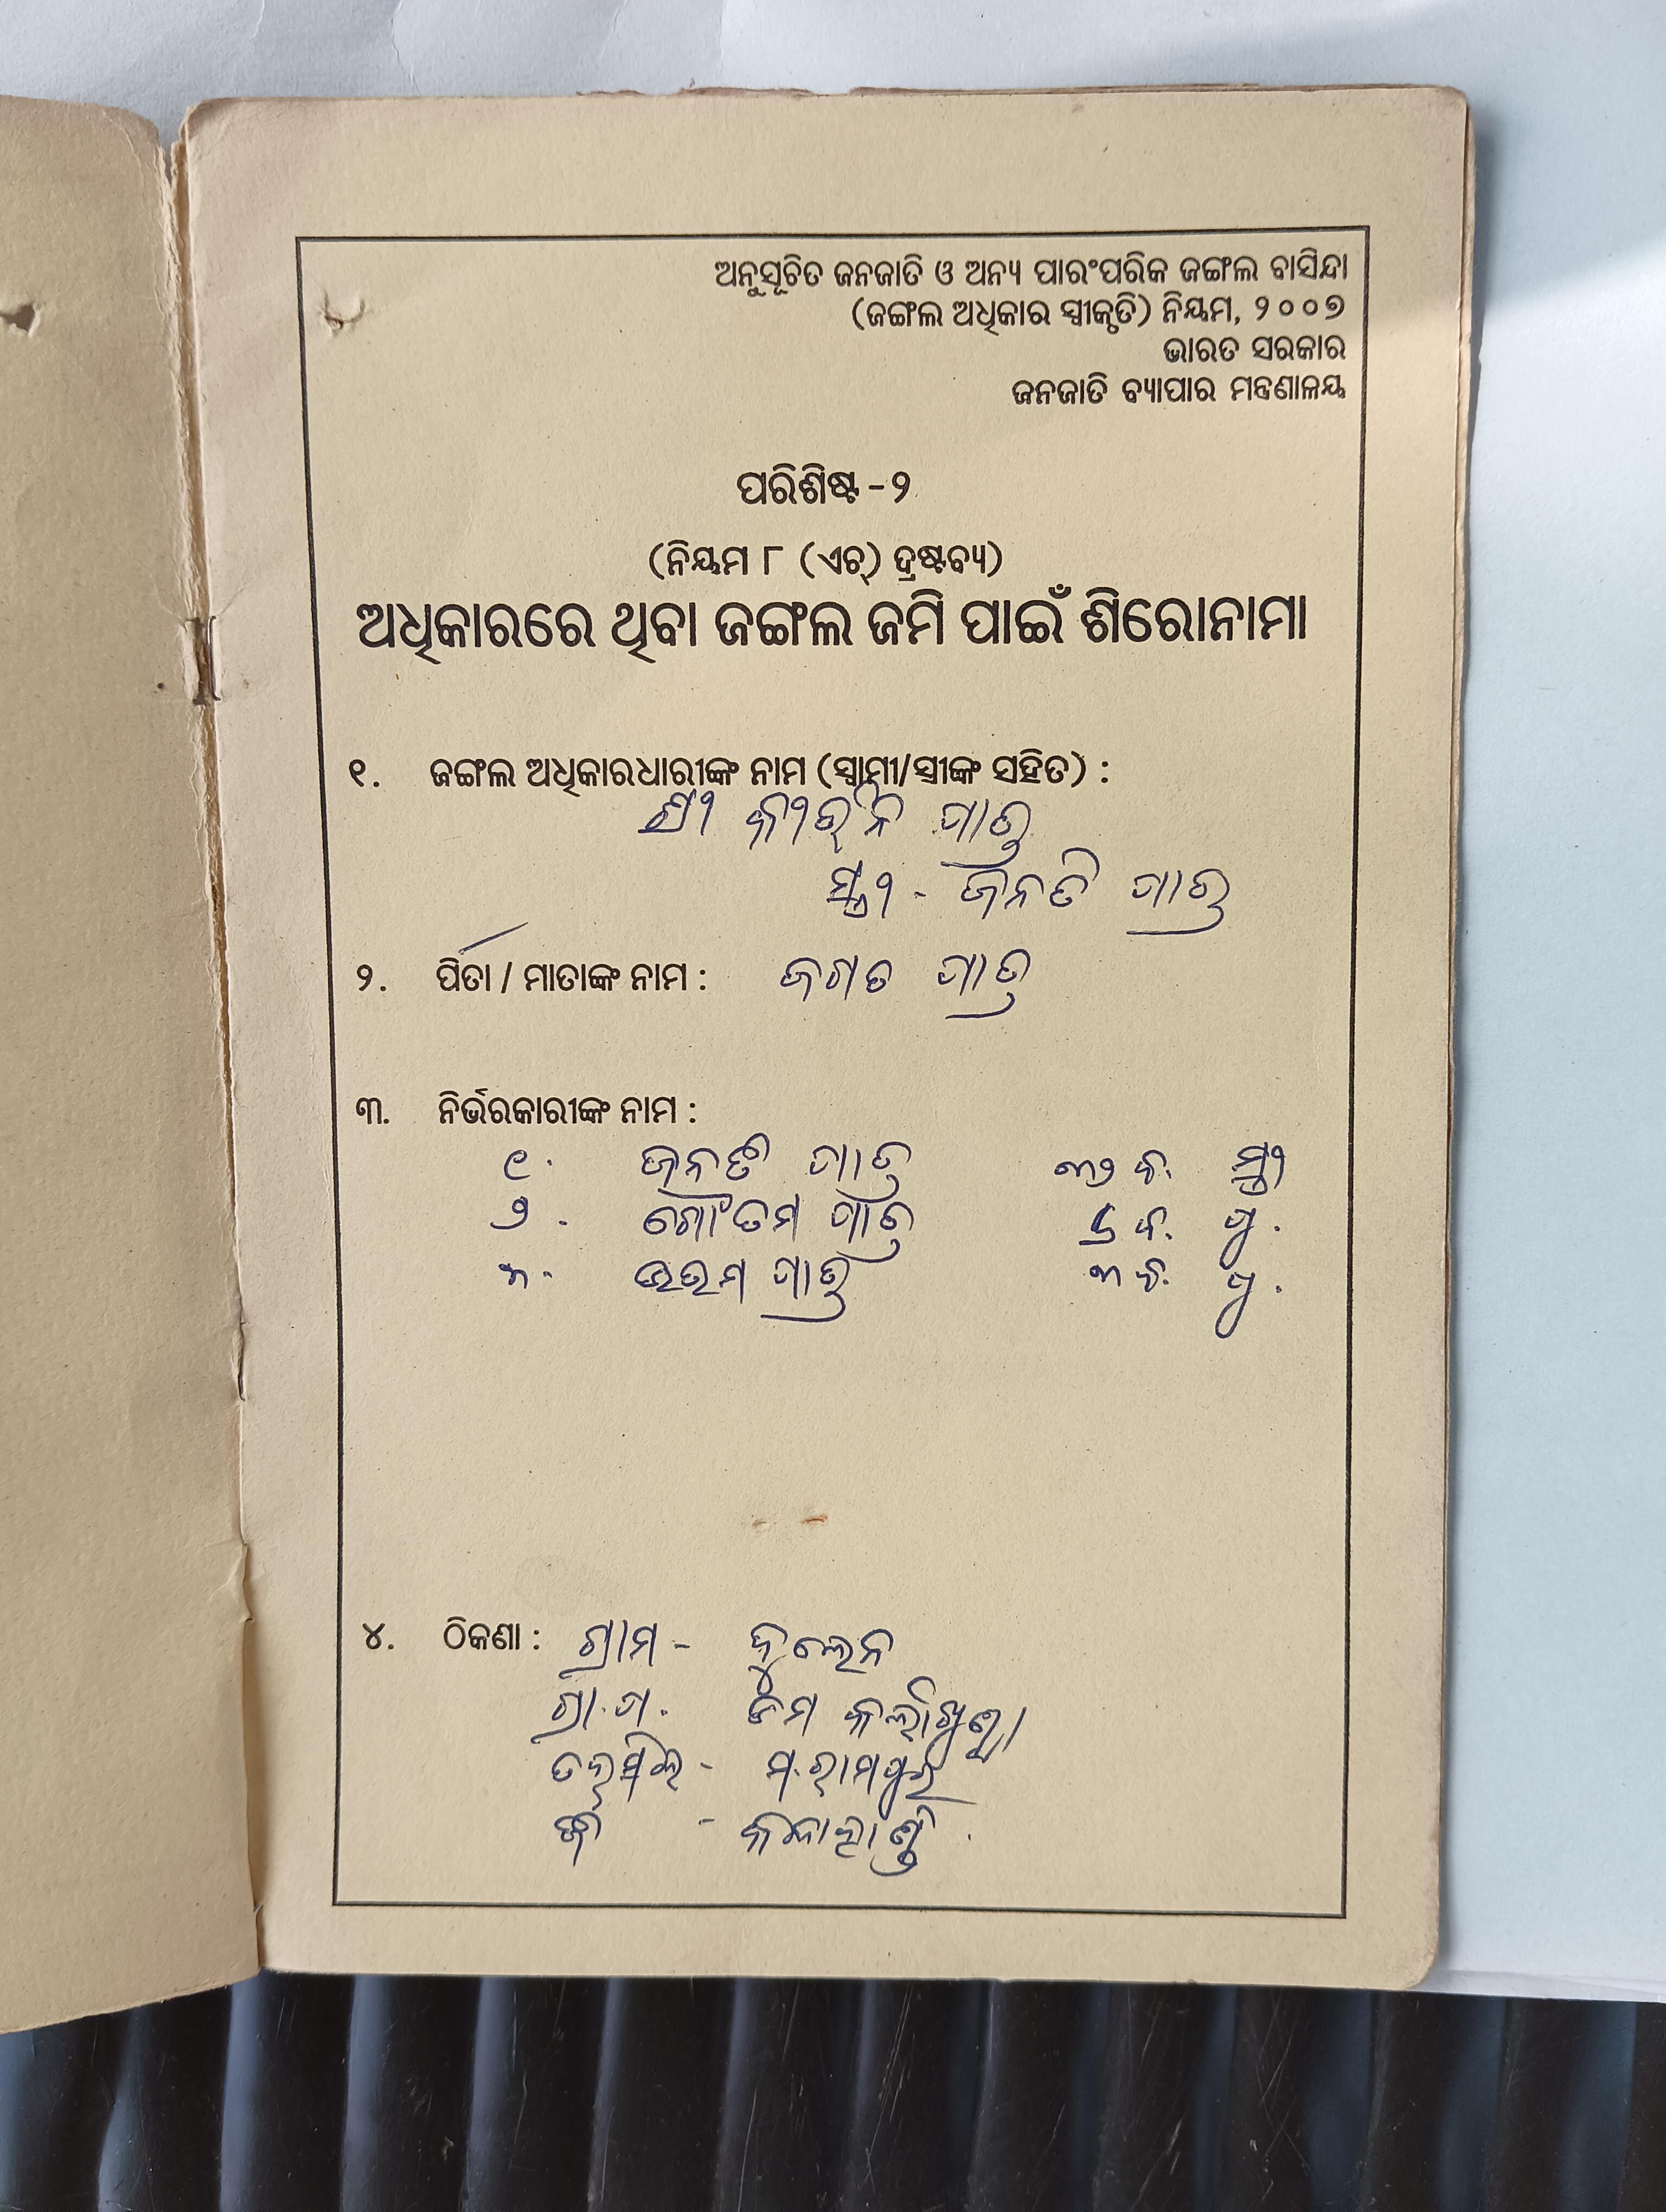 ଅନୁସୂଚିତ ଜନଜାତି ଓ ଅନ୍ୟ ପାରଂପରିକ ଜଙ୍ଗଲ ବାସିନ୍ଦା
(ଜଙ୍ଗଲ ଅଧିକାର ସ୍ୱୀକୃତି) ନିୟମ, ୨୦୦୭
ଭାରତ ସରକାର
ଜନଜାତି ବ୍ୟାପାର ମନ୍ତ୍ରଣାଳୟ
ପରିଶିଷ୍ଟ - ୨
(ନିୟମ ୮ (ଏଚ୍) ଦ୍ରଷ୍ଟବ୍ୟ)
ଅଧିକାରରେ ଥିବା ଜଙ୍ଗଲ ଜମି ପାଇଁ ଶିରୋନାମା
୧. ଜଙ୍ଗଲ ଅଧିକାରଧାରୀଙ୍କ ନାମ (ସ୍ୱାମୀ/ସ୍ତ୍ରୀଙ୍କ ସହିତ) :
ସ୍ତ୍ରୀ -
୨. ପିତା / ମାତାଙ୍କ ନାମ : ଜଗତ
୩. ନିର୍ଭରକାରୀଙ୍କ ନାମ :
୧. ୩୨ ବ. ସ୍ତ୍ରୀ
୨. ଗୌତମ ବ. ପୁ.
୩. ୩ ବ. ପୁ.
୪. ଠିକଣା : ଗ୍ରାମ - ଦୁଲେନ
ଗ୍ରା.ପ.
ତହସିଲ - ମ.ରାମପୁର
ଜି - କଳାହାଣ୍ଡି.